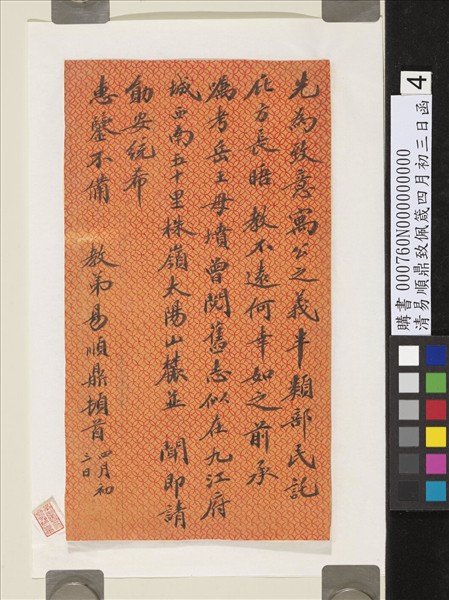 先為致意寓公之義半類部民託
在方長晤 教不遠何幸如之前承
屬考岳王母墳曾閱舊志似在九江府
城西南五十里株嶺太陽山麓並 聞即請
勛安統希
惠鑒不備
教弟易順鼎頓首 四月初
三日
4
購書 000760N000000000
清易順鼎致佩箴四月初三日函